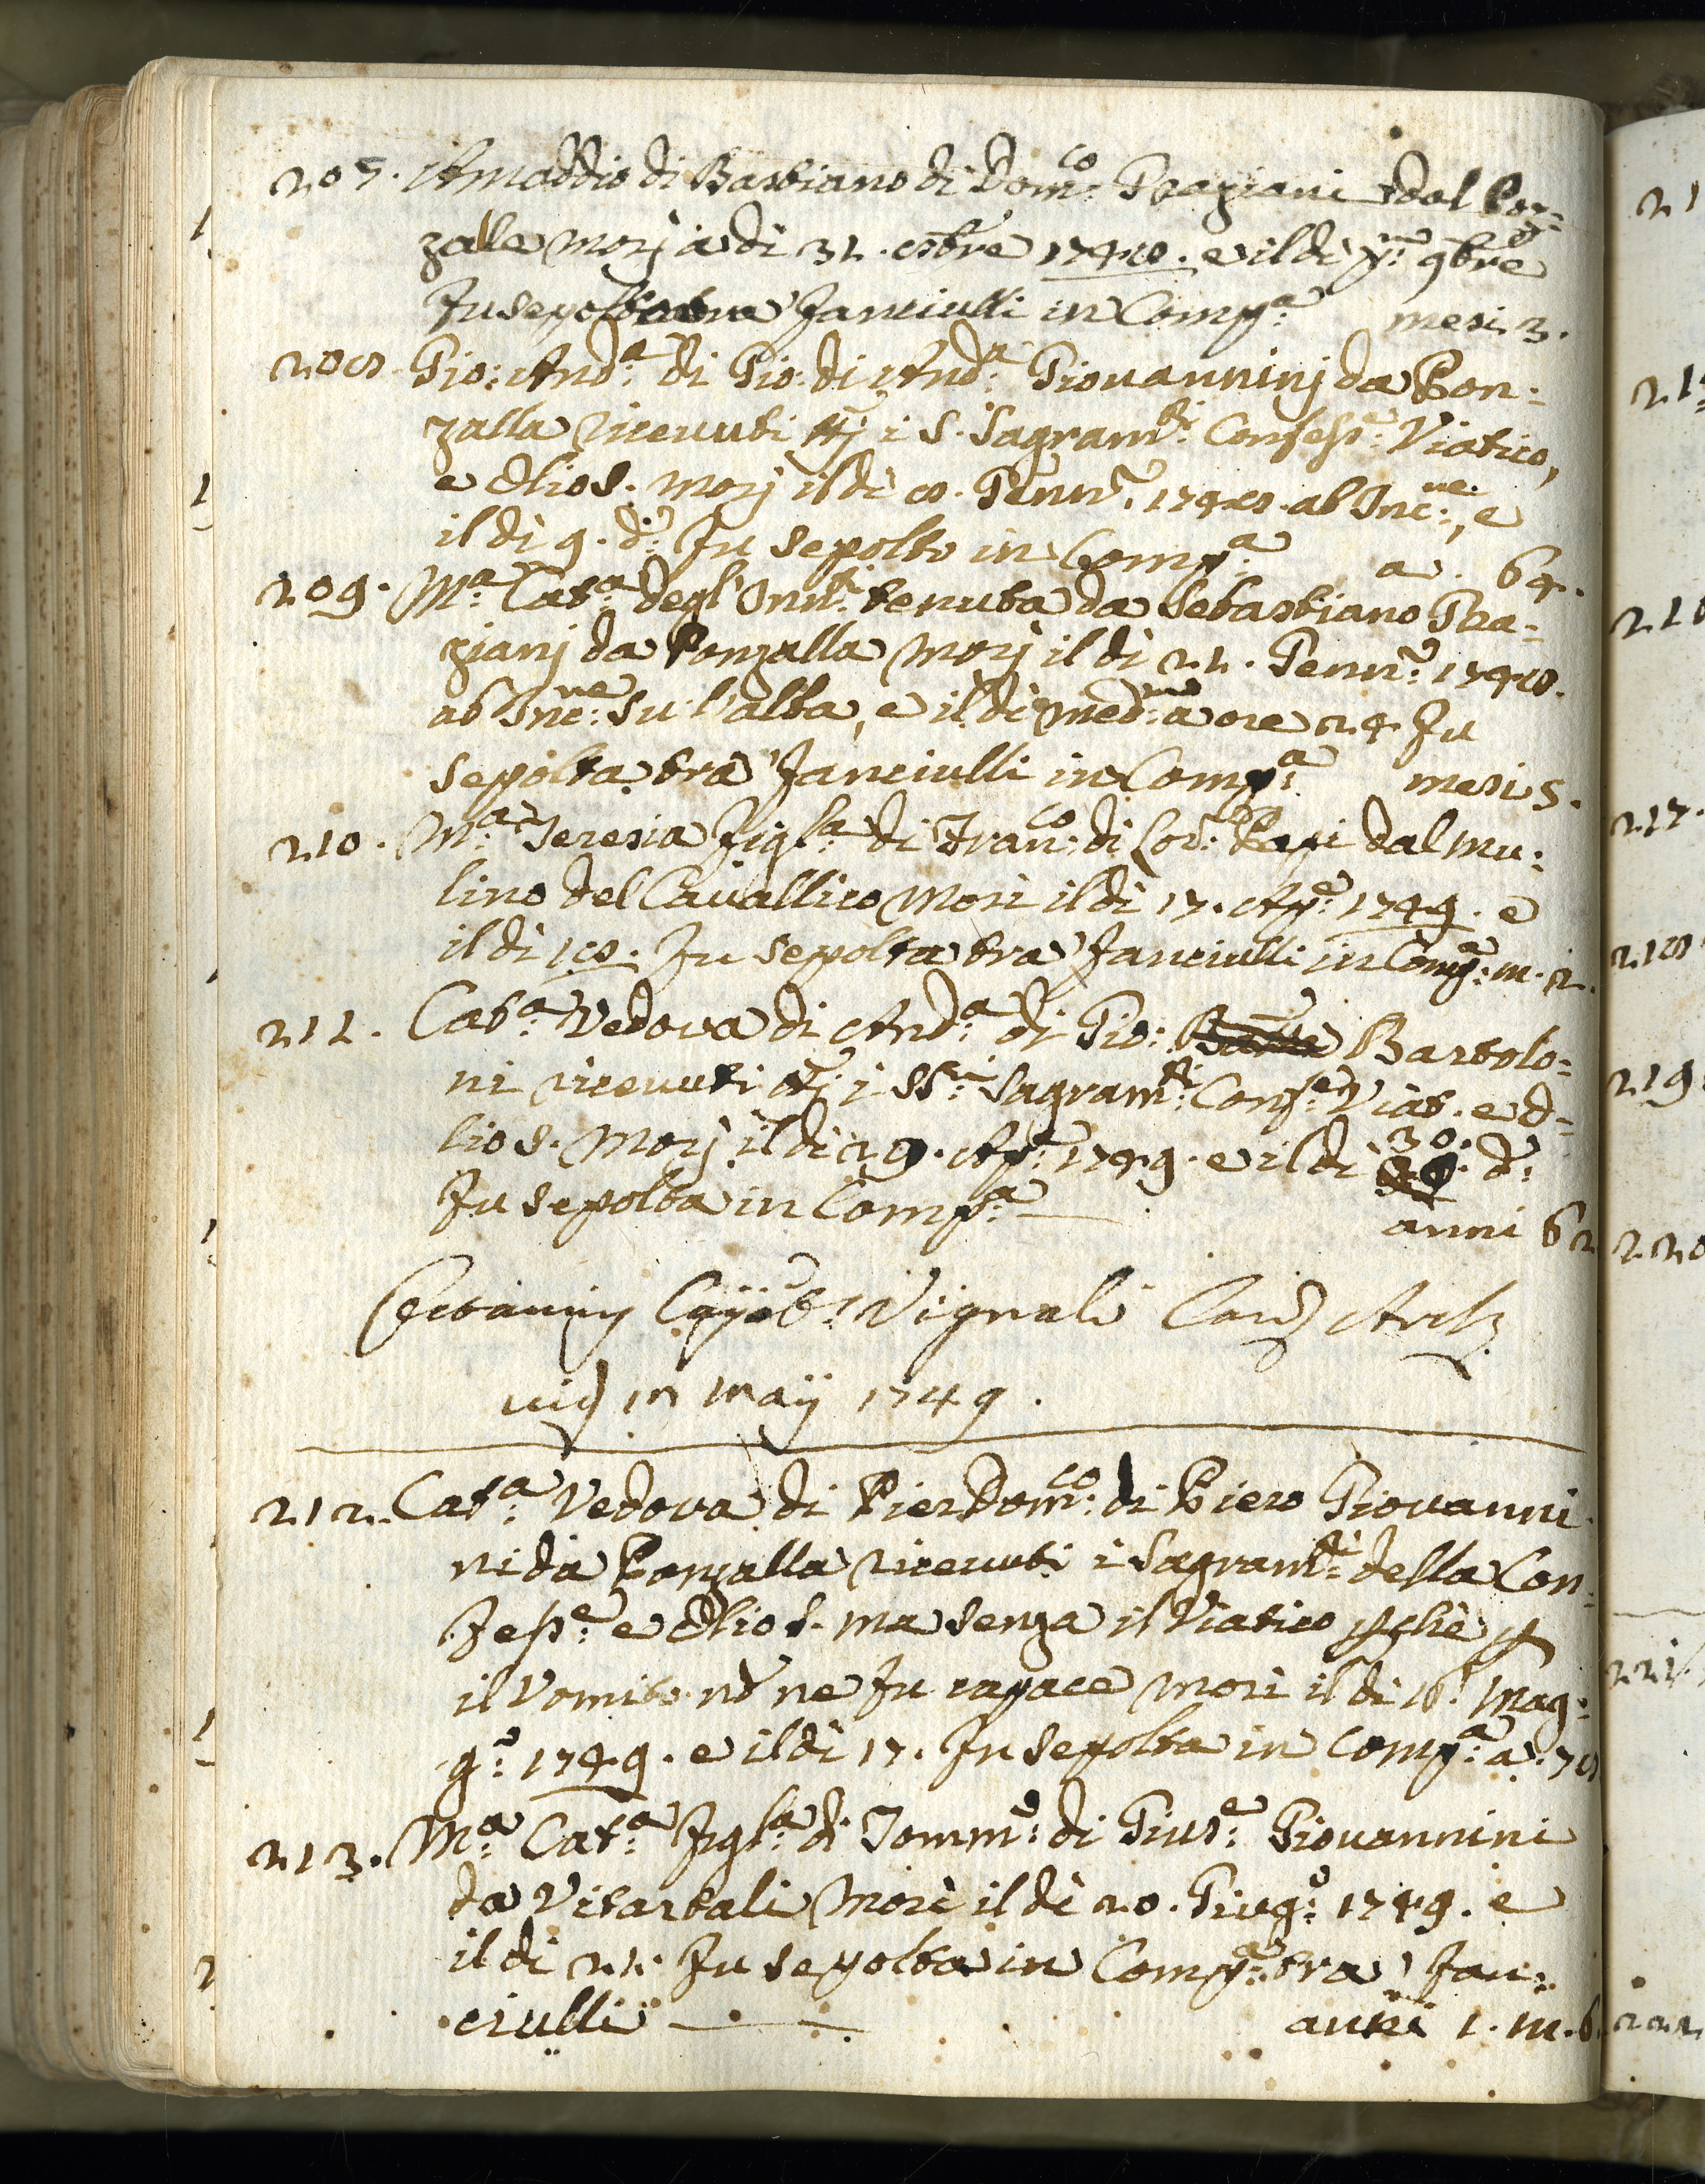 207. Amaddio di Bastiano di Dom:co Graziani dal Pog=
zale morj a dì 31. 8bre 1748. e il dì p:mo 9bre
fu sepolto tra fanciulli in Comp:a mesi 3.
208. Gio: And:a di Gio: di And:a Giovanninj da Ron:
zalla ricevuti ttj i S. Sagram:ti Confess:e Viatico,
e Olio S. morj il dì 8. Genn:o 1748. ab Inc:ne, e
il dì 9. d:o fu sepolto in Comp:a a. 64.
209. M:a Cat:a degl'Inn:ti tenuta da Sebastiano Gra=
zianj da Ronzalla morj il dì 21. Genn:o 1748.
ab Inc:ne su l'alba, e il dì med:mo a ore 24 fu
sepolta tra fanciulli in Comp:a mesi 5.
210. M:a Teresia figl:la di Fran:co di Lor:o Papi dal mu:
lino del Cavallico morì il dì 17. Ap:e 1749. e
il dì 18. fu sepolta tra fanciulli in Comp:a m. 2.
211. Cat:a Vedova di And:a di Gio: Bartolo=
ni ricevuti ttj i SS:mi Sagram:ti Conf:e Viat. e O=
lio S. morj il dì 29. Ap:e 1749. e il dì 30. d:o
fu sepolta in Comp:a anni 62
Vignali
in May 1749.
212. Cat:a Vedova di Pier Dom:co di Piero Giovanni
ni da Ronzalla ricevuti i Sagram:ti della Con
fess:e e Olio S. ma senza il Viatico pchè p
il vomito nò ne fu capace morì il dì 16. Mag=
g:o 1749. e il dì 17. fu sepolta in Comp:a a. 78
213. M:a Cat:a figl:la di Tomm:o di Gius:e Giovannini
da Visartali morì il dì 20. Giug:o 1749. e
il dì 21. fu sepolta in Comp:a tra fan=
ciulli anni 1. m. 6.